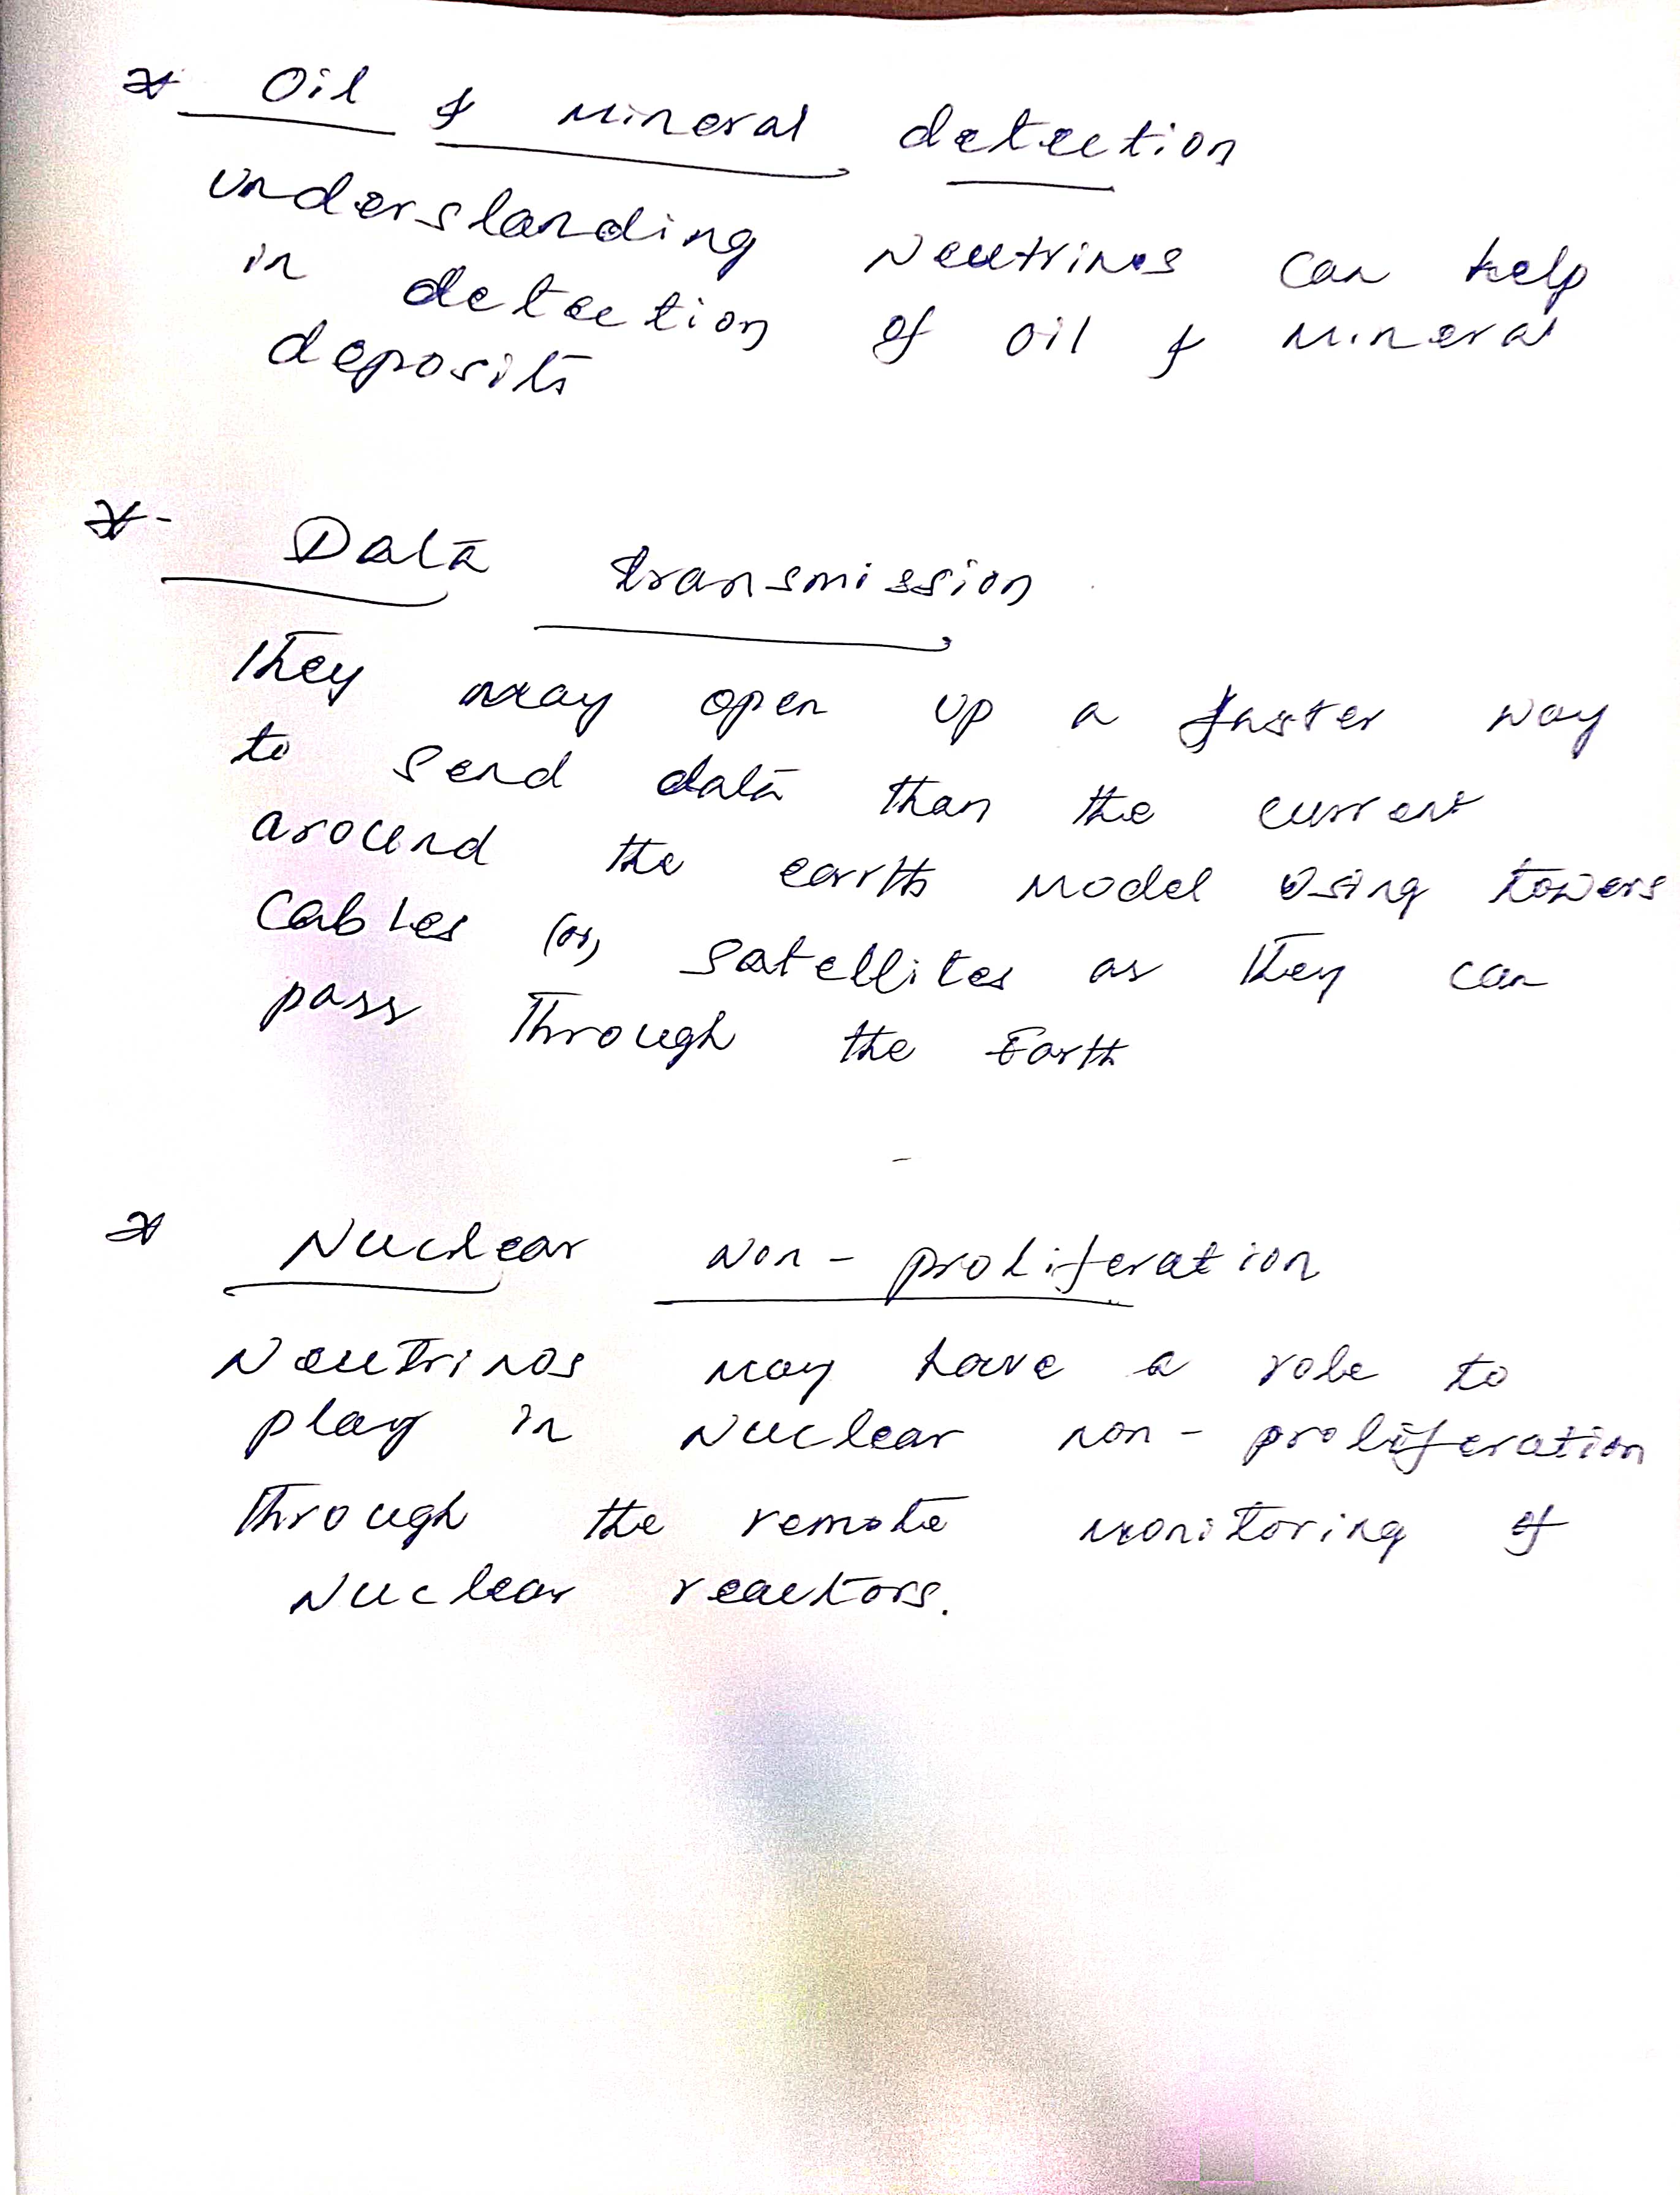 * Oil & mineral detection
understanding Neutrinos can help
in detection of oil & mineral
deposits
* - Data transmission
They may open up a faster way
to send data than the current
around the earth model using towers
cables (or) satellites as they can
pass through the Earth
* Nuclear non-proliferation
Neutrinos may have a role to
play in nuclear non-proliferation
through the remote monitoring of
nuclear reactors.